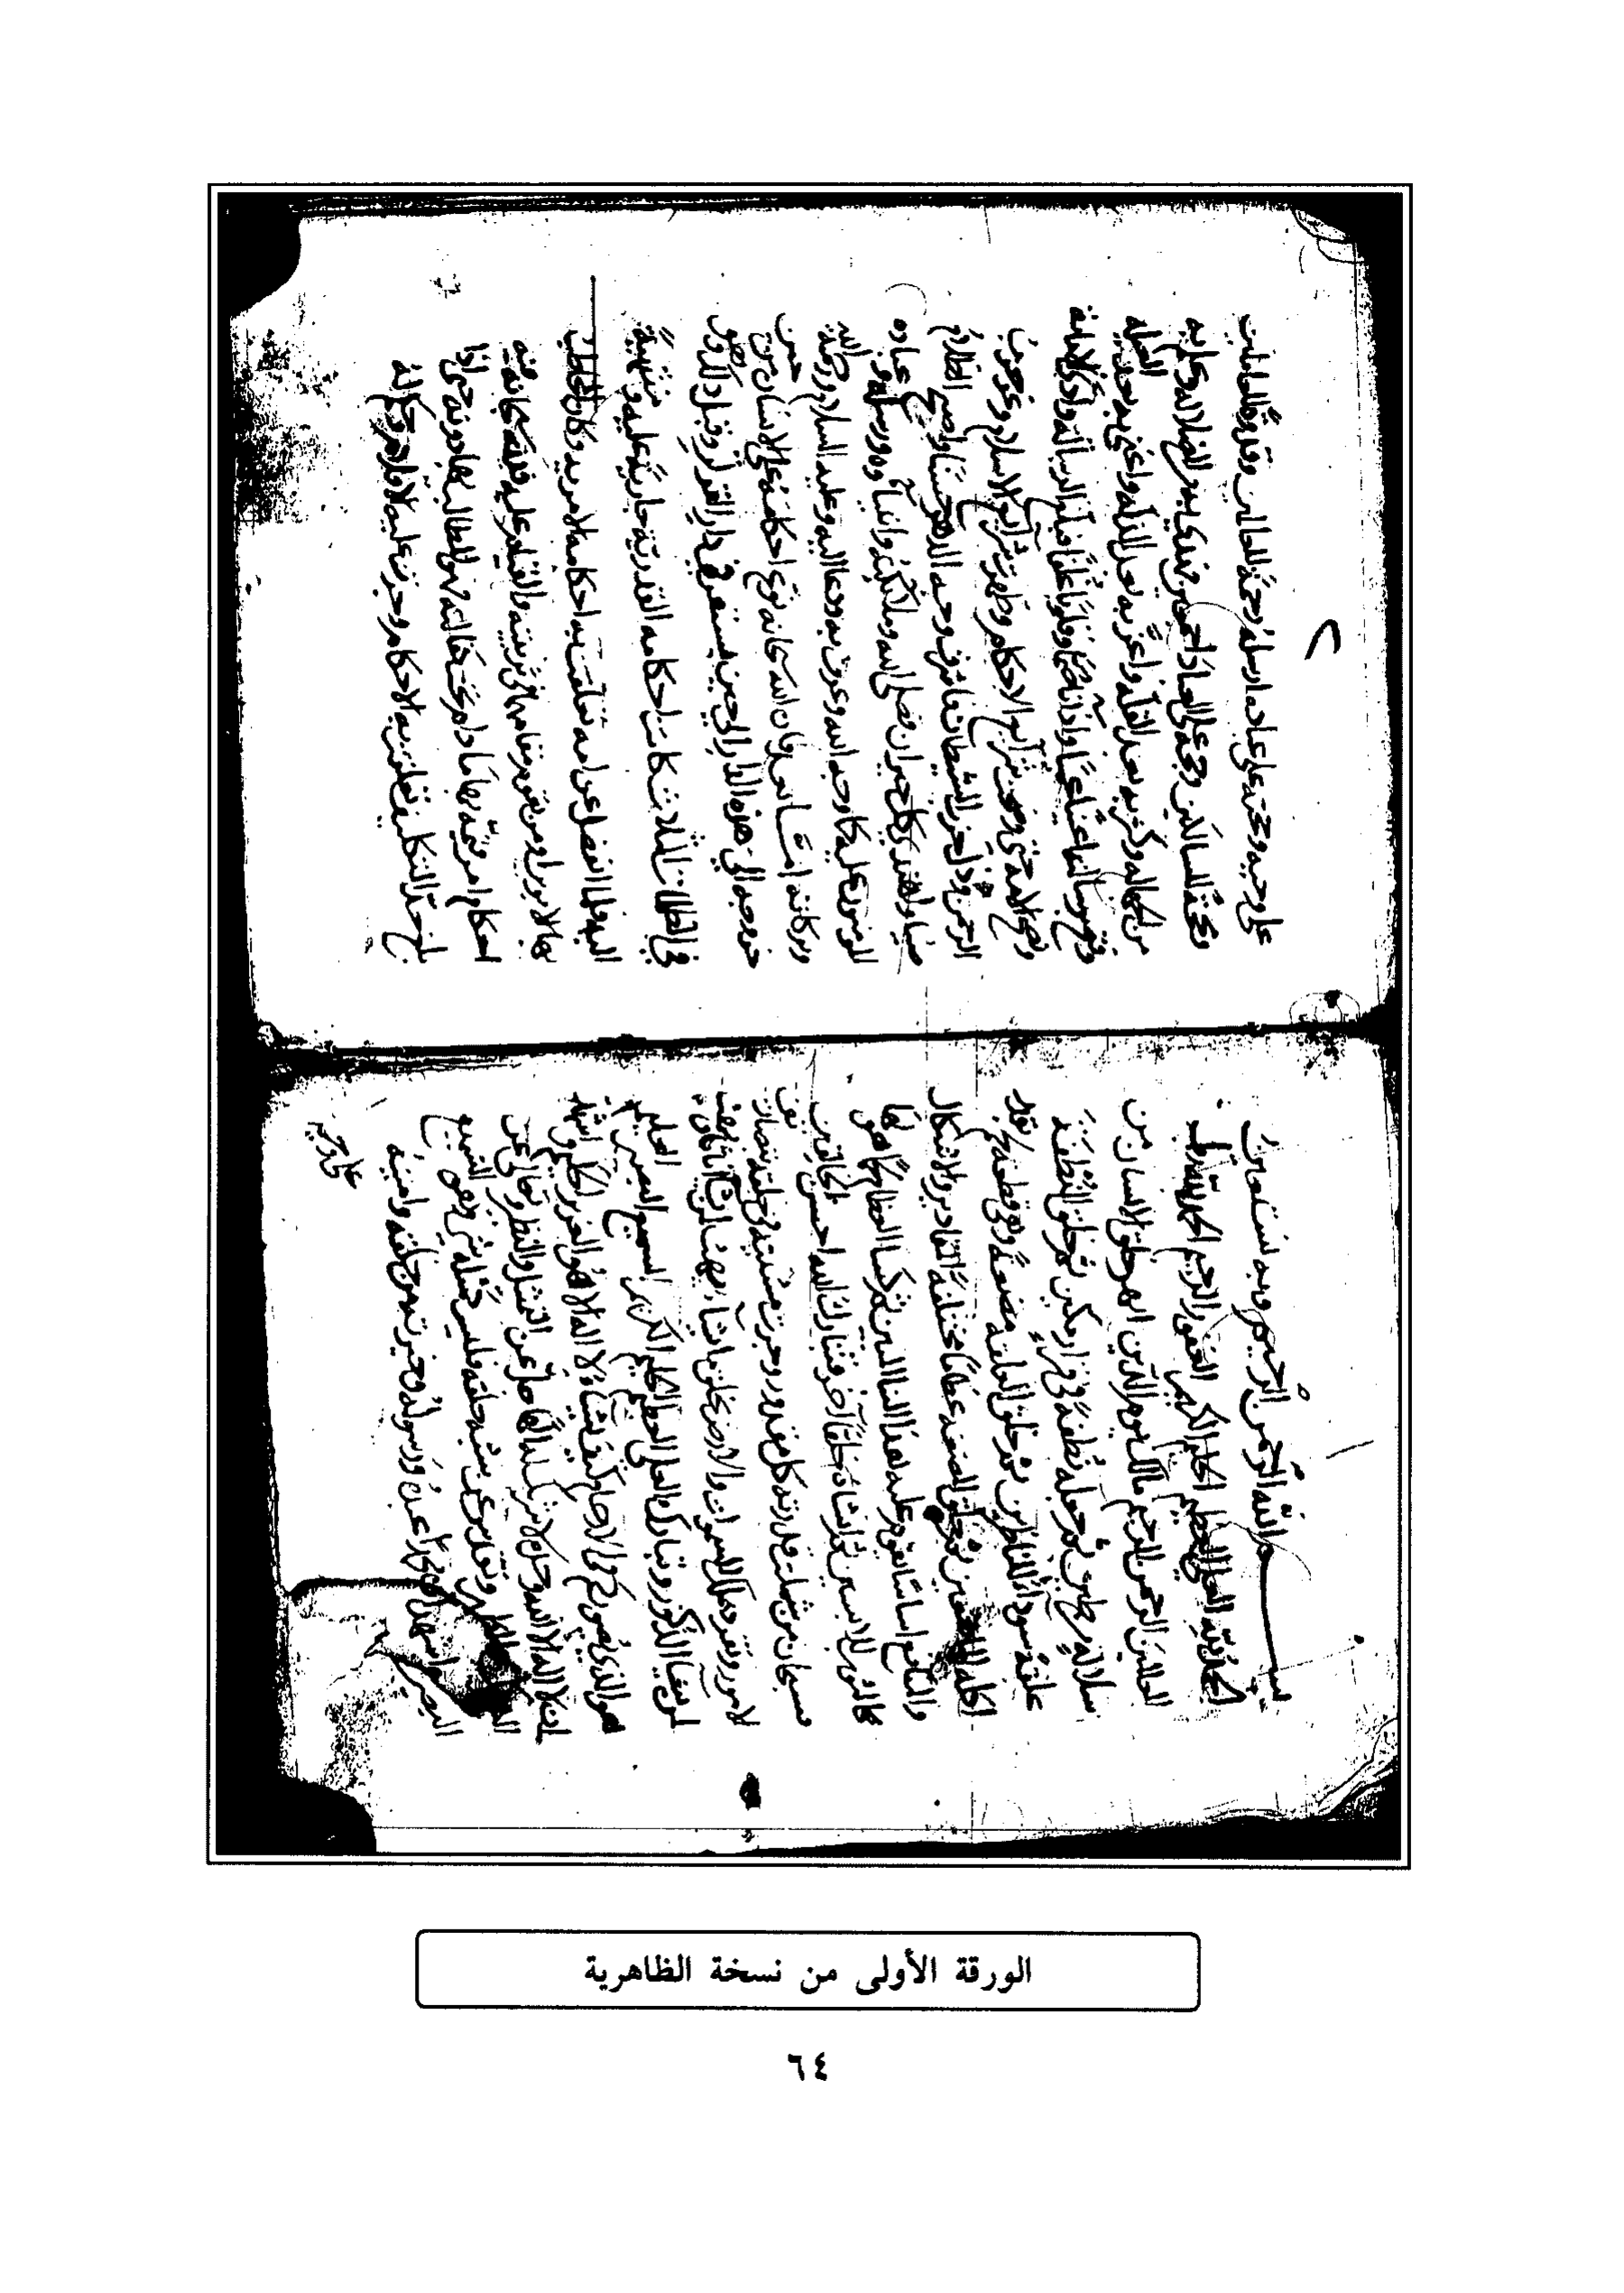 بسم الله الرحمن الرحيم وبه نستعين
الحمد لله العلي العظيم الحليم الكريم الغفور الرحيم الحمد لله رب
العالمين الرحمن الرحيم مالك يوم الدين الذي خلق الانسان من
سلالة من طين ثم جعله نطفة في قرار مكين ثم خلق النطفة
علقة سوداء للناظرين ثم خلق العلقة مضغة وهي قطعة لحم بقدر
اكلة الماضغين ثم خلق المضغة عظاما مختلفة المقادير والاشكال
والمنافع اساسا يقوم عليه هذا البناء المبين ثم كسا العظام لحما هو لها
كالثوب للابسين ثم انشاه خلقا آخر فتبارك الله احسن الخالقين
فسبحان من شملت قدرته كل مقدور وجرت مشيئته في خلقه بتصاريف
الامور وتفرد بملك السموات والارض يخلق ما يشاء يهب لمن يشاء اناثا ويهب
لمن يشاء الذكور وتبارك العلي العظيم الحليم الكريم السميع البصير العليم
هو الذي يصوركم في الارحام كيف يشاء لا اله الا هو العزيز الحكيم واشهد
ان لا اله الا الله وحده لا شريك له الها جل عن المثل والنظير وتعالى عن
وتقدس عن شبه خلقه فليس كمثله شيء وهو السميع
البصير واشهد ان محمدا عبده ورسوله وخيرته من خلقه وامينه
على وحيه
على وحيه وحجته على عباده ارسله رحمة للعالمين وقدوة للعاملين
ومحجة للسالكين وحجة على العباد اجمعين فهدى به من الضلالة وعلم به
من الجهالة وكثر به بعد القلة واعز به بعد الذلة واغنى به بعد العيلة
وفتح برسالته اعينا عميا وآذانا صما وقلوبا غلفا فبلغ الرسالة وادى الامانة
ونصح الامة حتى وضحت شرائع الاحكام وظهرت شرائع الاسلام وعز حزب
الرحمن وذل حزب الشيطان فاشرق وجه الدهر حسنا واصبح الظلام
ضياء واهتدى كل حيران فصلى الله وملائكته وانبياؤه ورسله وعباده
المؤمنون عليه كما وحد الله وعرف به ودعا اليه وعليه السلام ورحمة الله
وبركاته اما بعد فان الله سبحانه نوع احكامه على الانسان من حين
خروجه الى هذه الدار الى حين يستقر في دار القرار وقبل ذلك وهو
في الظلمات الثلاث كانت احكامه القدرية جارية عليه ومنتهية
اليه فلما انفصل عن امه تعلقت به احكامه الامرية وكان المخاطب
بها الابوين او من يقوم مقامهما في تربيته والقيام عليه فلله سبحانه فيه
احكام امر قيمه بها ما دام تحت كفالته فهو المطالب بها دونه حتى اذا
بلغ حد التكليف تعلقت به الاحكام وجرت عليه الاقلام وحكم له
الورقة الأولى من نسخة الظاهرية
٦٤